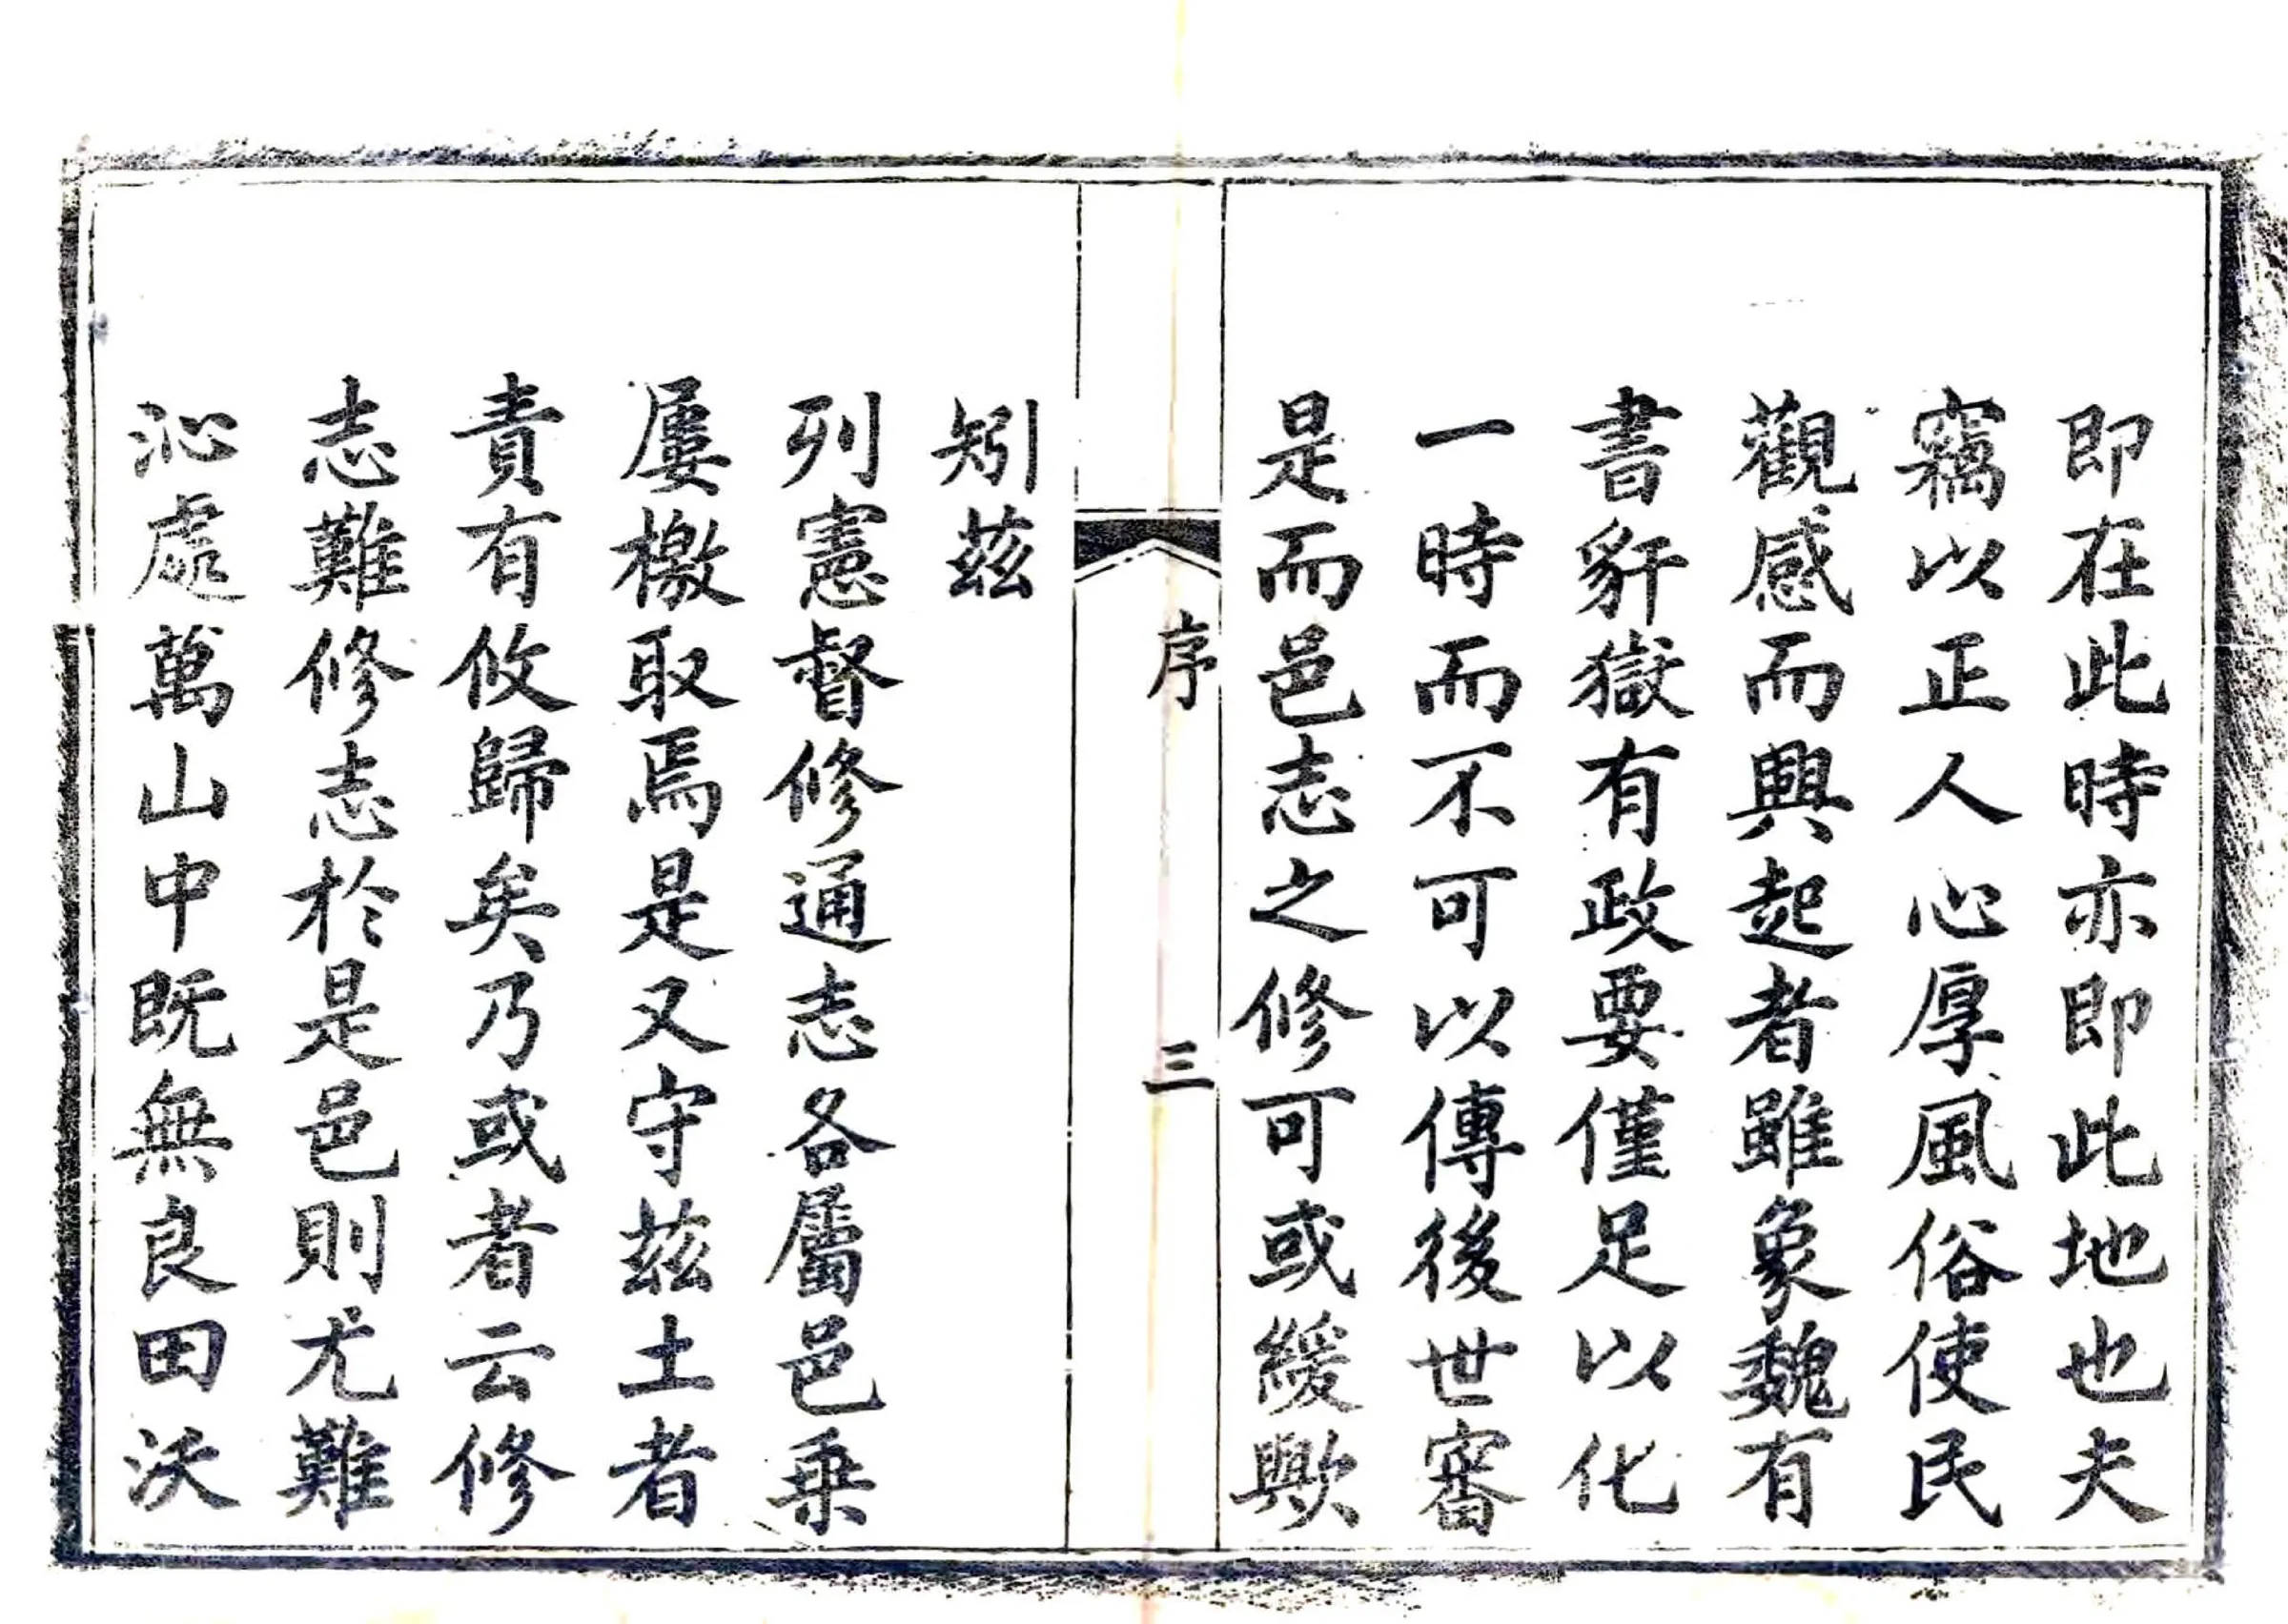 即在此時亦即此地也夫
竊以正人心厚風俗使民
觀感而興起者雖象魏有
書豻獄有政要僅足以化
一時而不可以傳後世審
是而邑志之修可或緩歟
序
三
矧茲
列憲督修通志各屬邑乗
屢檄取焉是又守茲土者
責有攸歸矣乃或者云修
志難修志於是邑則尤難
沁處萬山中既無良田沃